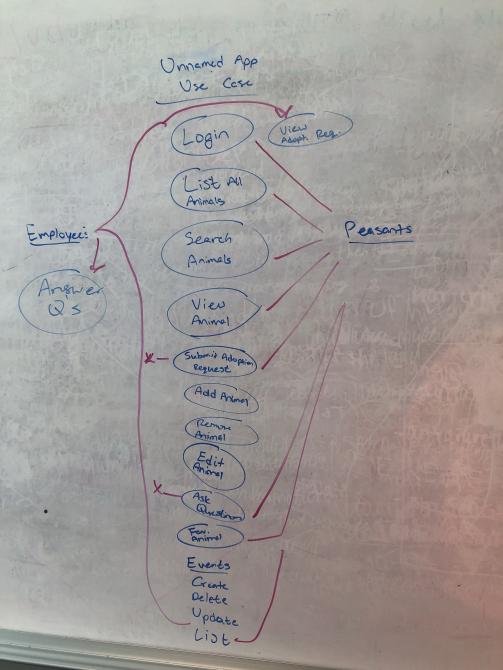 Unnamed App
Use Case
Login
View
Adopt Req.
List All
Animals
Employees
Peasants
Search
Animals
Answer
Qs
View
Animal
Submit Adoption
Request
Add Animal
Remove
Animal
Edit
Animal
Ask
Questions
Fav.
animal
Events
Create
Delete
Update
List